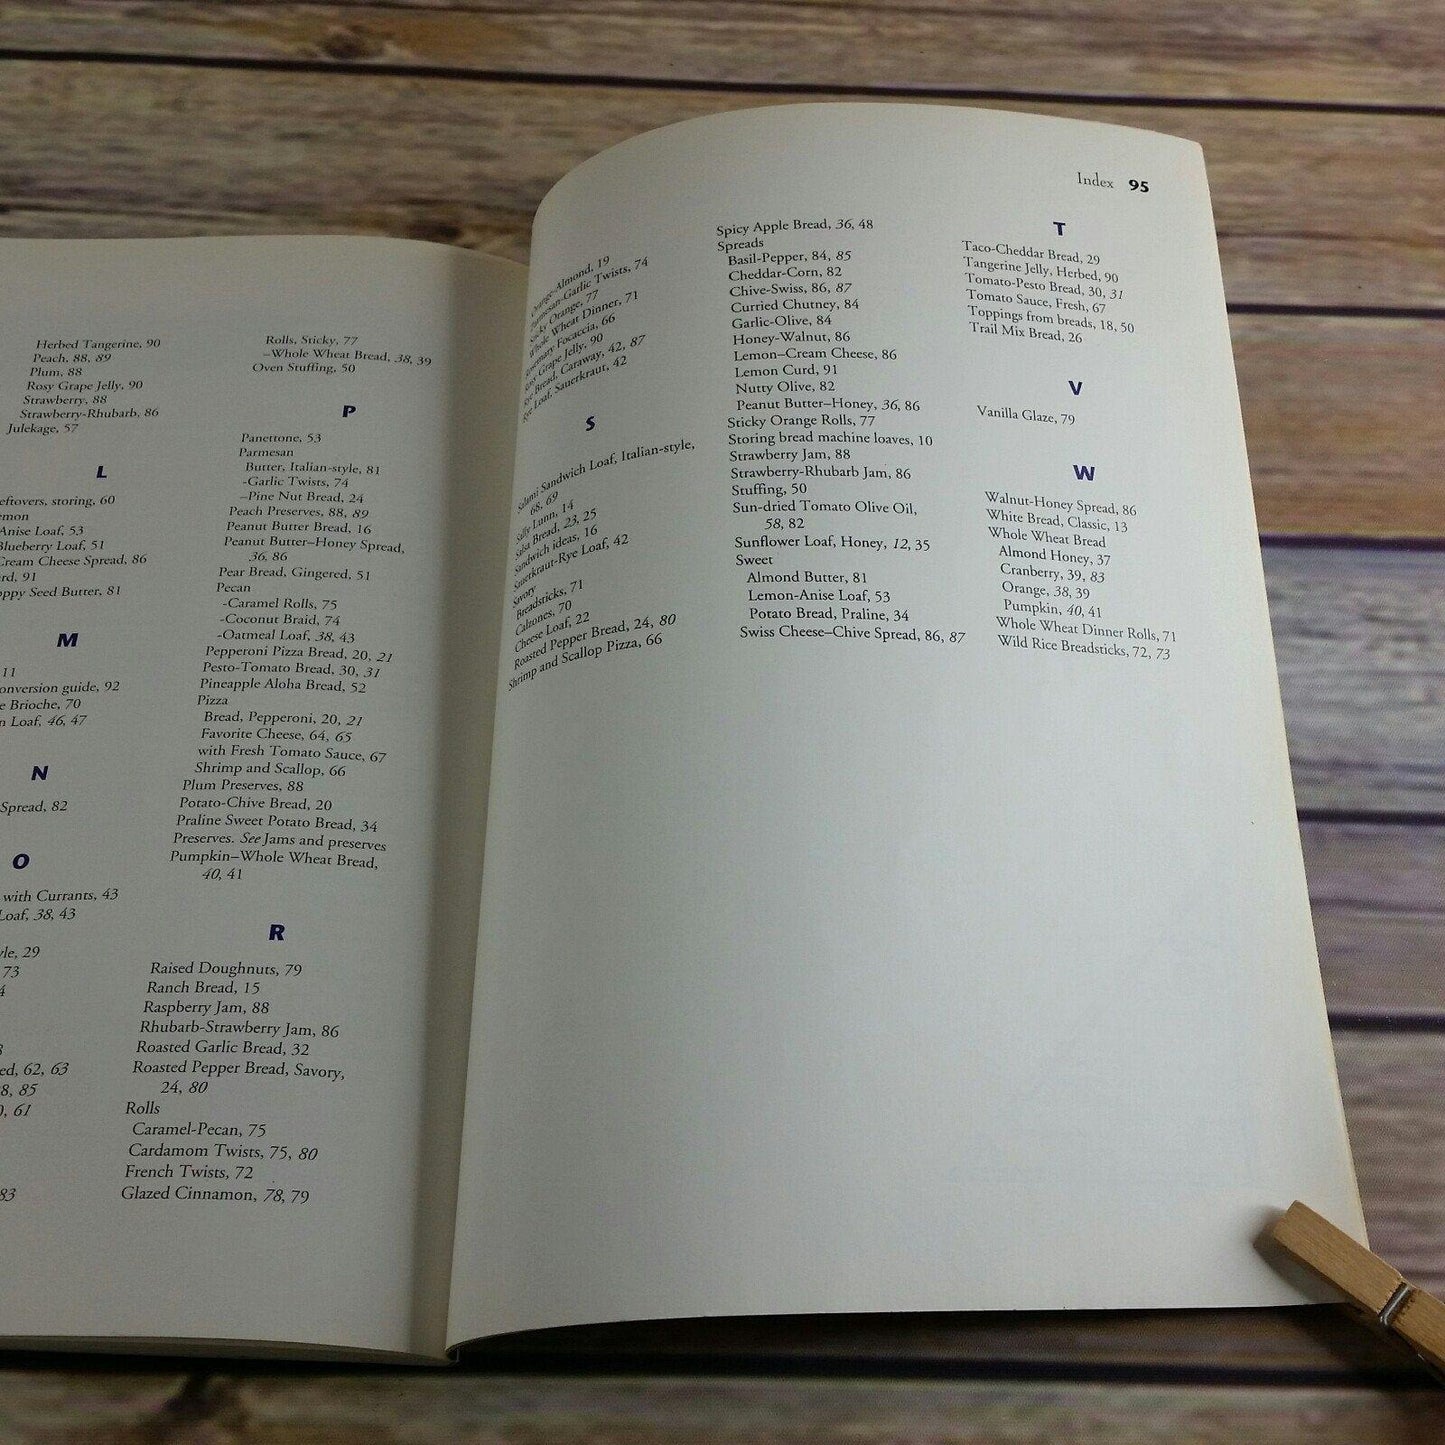 Herbed Tangerine, 90
Peach, 88, 89
Plum, 88
Rosy Grape Jelly, 90
Strawberry, 88
Strawberry-Rhubarb, 86
Julekage, 57
L
eftovers, storing, 60
emon
Anise Loaf, 53
Blueberry Loaf, 51
Cream Cheese Spread, 86
rd, 91
oppy Seed Butter, 81
M
11
onversion guide, 92
e Brioche, 70
n Loaf, 46, 47
N
Spread, 82
O
with Currants, 43
Loaf, 38, 43
yle, 29
73
4
8
ed, 62, 63
8, 85
0, 61
83
Rolls, Sticky, 77
–Whole Wheat Bread, 38, 39
Oven Stuffing, 50
P
Panettone, 53
Parmesan
Butter, Italian-style, 81
-Garlic Twists, 74
–Pine Nut Bread, 24
Peach Preserves, 88, 89
Peanut Butter Bread, 16
Peanut Butter–Honey Spread,
36, 86
Pear Bread, Gingered, 51
Pecan
-Caramel Rolls, 75
-Coconut Braid, 74
-Oatmeal Loaf, 38, 43
Pepperoni Pizza Bread, 20, 21
Pesto-Tomato Bread, 30, 31
Pineapple Aloha Bread, 52
Pizza
Bread, Pepperoni, 20, 21
Favorite Cheese, 64, 65
with Fresh Tomato Sauce, 67
Shrimp and Scallop, 66
Plum Preserves, 88
Potato-Chive Bread, 20
Praline Sweet Potato Bread, 34
Preserves. See Jams and preserves
Pumpkin–Whole Wheat Bread,
40, 41
R
Raised Doughnuts, 79
Ranch Bread, 15
Raspberry Jam, 88
Rhubarb-Strawberry Jam, 86
Roasted Garlic Bread, 32
Roasted Pepper Bread, Savory,
24, 80
Rolls
Caramel-Pecan, 75
Cardamom Twists, 75, 80
French Twists, 72
Glazed Cinnamon, 78, 79
Index 95
Orange-Almond, 19
Parmesan-Garlic Twists, 74
Sticky Orange, 77
Whole Wheat Dinner, 71
Rosemary Focaccia, 66
Rosy Grape Jelly, 90
Rye Bread, Caraway, 42, 87
Rye Loaf, Sauerkraut, 42
S
Salami Sandwich Loaf, Italian-style,
68, 69
Sally Lunn, 14
Salsa Bread, 23, 25
Sandwich ideas, 16
Sauerkraut-Rye Loaf, 42
Savory
Breadsticks, 71
Calzones, 70
Cheese Loaf, 22
Roasted Pepper Bread, 24, 80
Shrimp and Scallop Pizza, 66
Spicy Apple Bread, 36, 48
Spreads
Basil-Pepper, 84, 85
Cheddar-Corn, 82
Chive-Swiss, 86, 87
Curried Chutney, 84
Garlic-Olive, 84
Honey-Walnut, 86
Lemon–Cream Cheese, 86
Lemon Curd, 91
Nutty Olive, 82
Peanut Butter–Honey, 36, 86
Sticky Orange Rolls, 77
Storing bread machine loaves, 10
Strawberry Jam, 88
Strawberry-Rhubarb Jam, 86
Stuffing, 50
Sun-dried Tomato Olive Oil,
58, 82
Sunflower Loaf, Honey, 12, 35
Sweet
Almond Butter, 81
Lemon-Anise Loaf, 53
Potato Bread, Praline, 34
Swiss Cheese–Chive Spread, 86, 87
T
Taco-Cheddar Bread, 29
Tangerine Jelly, Herbed, 90
Tomato-Pesto Bread, 30, 31
Tomato Sauce, Fresh, 67
Toppings from breads, 18, 50
Trail Mix Bread, 26
V
Vanilla Glaze, 79
W
Walnut-Honey Spread, 86
White Bread, Classic, 13
Whole Wheat Bread
Almond Honey, 37
Cranberry, 39, 83
Orange, 38, 39
Pumpkin, 40, 41
Whole Wheat Dinner Rolls, 71
Wild Rice Breadsticks, 72, 73